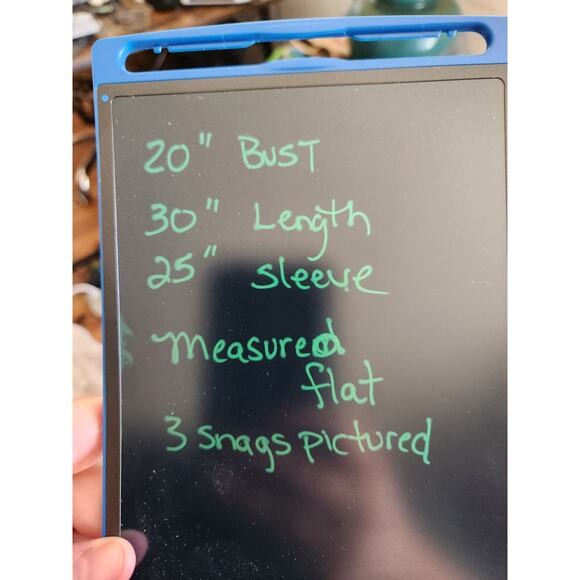 20" BUST
30" Length
25" sleeve
measured
flat
3 snags pictured